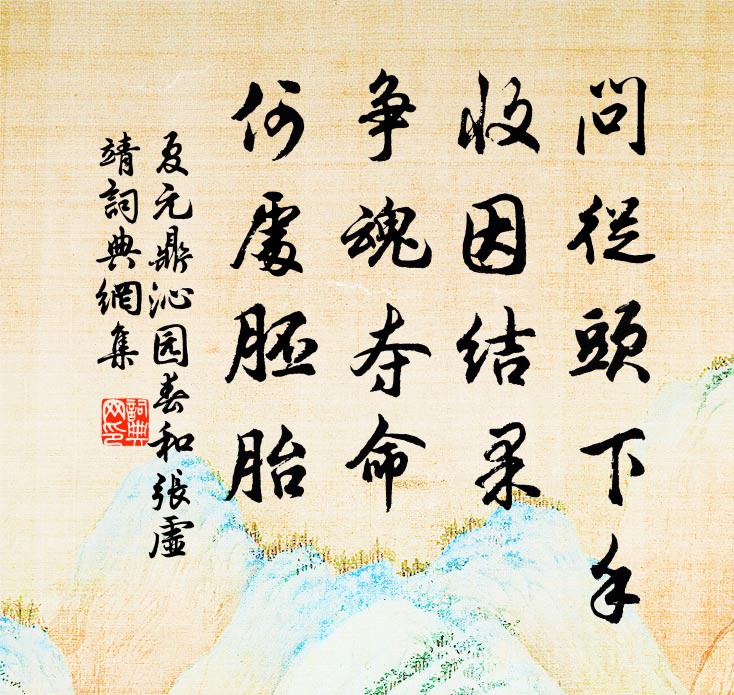 問從頭下手
收因结果
争魂夺命
何處胚胎
夏元鼎沁园春和張虛
靖詞典網集
詞典
网印